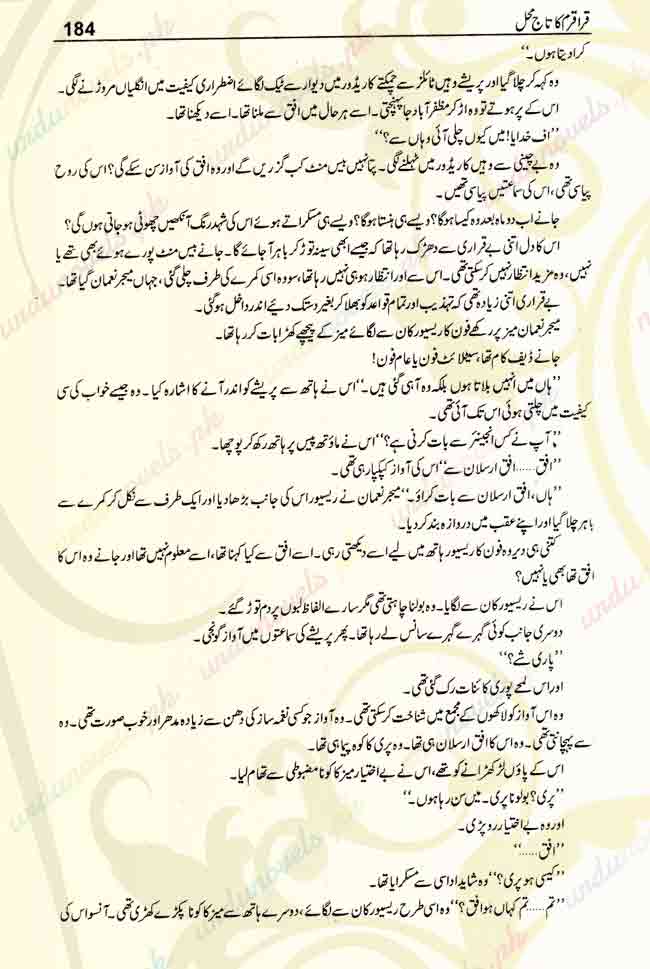 184
قراقرم کا تاج محل
کرا دیتا ہوں۔‘‘
وہ کہہ کر چلا گیا اور پریشے وہیں ٹائلز سے چمکتے کاریڈور میں دیوار سے ٹیک لگائے اضطراری کیفیت میں انگلیاں مروڑنے لگی۔
اس کے پر ہوتے تو وہ اڑ کر مظفرآباد جا پہنچتی۔ اسے ہر حال میں افق سے ملنا تھا۔ اسے دیکھنا تھا۔
’’اف خدایا! میں کیوں چلی آئی وہاں سے؟‘‘
وہ بے چینی سے وہیں کاریڈور میں ٹہلنے لگی۔ پتا نہیں بیس منٹ کب گزریں گے اور وہ افق کی آواز سن سکے گی؟ اس کی روح
پیاسی تھی، اس کی سماعتیں پیاسی تھیں۔
جانے اب دو ماہ بعد وہ کیسا ہو گا؟ ویسے ہی ہنستا ہو گا؟ ویسے ہی مسکراتے ہوئے اس کی شہد رنگ آنکھیں چھوٹی ہو جاتی ہوں گی؟
اس کا دل اتنی بے قراری سے دھڑک رہا تھا کہ جیسے ابھی سینہ توڑ کر باہر آ جائے گا۔ جانے بیس منٹ پورے ہوئے بھی تھے یا
نہیں، وہ مزید انتظار نہیں کر سکتی تھی۔ اس سے اور انتظار ہو ہی نہیں رہا تھا، سو وہ اسی کمرے کی طرف چلی گئی، جہاں میجر نعمان گیا تھا۔
بے قراری اتنی زیادہ تھی کہ تہذیب اور تمام قواعد کو بھلا کر بغیر دستک دیئے اندر داخل ہو گئی۔
میجر نعمان میز پر رکھے فون کا ریسیور کان سے لگائے میز کے پیچھے کھڑا بات کر رہا تھا۔
جانے ڈیف کام تھا، سیٹلائٹ فون یا عام فون!
’’ہاں میں انہیں بلاتا ہوں بلکہ وہ آ ہی گئی ہیں۔‘‘ اس نے ہاتھ سے پریشے کو اندر آنے کا اشارہ کیا۔ وہ جیسے خواب کی سی
کیفیت میں چلتی ہوئی اس تک آئی تھی۔
’’آپ نے کس انجینئر سے بات کرنی ہے؟‘‘ اس نے ماؤتھ پیس پر ہاتھ رکھ کر پوچھا۔
’’افق……افق ارسلان سے‘‘ اس کی آواز کپکپا رہی تھی۔
’’ہاں، افق ارسلان سے بات کراؤ۔‘‘ میجر نعمان نے ریسیور اس کی جانب بڑھا دیا اور ایک طرف سے نکل کر کمرے سے
باہر چلا گیا اور اپنے عقب میں دروازہ بند کر دیا۔
کتنی ہی دیر وہ فون کا ریسیور ہاتھ میں لیے اسے دیکھتی رہی۔ اسے افق سے کیا کہنا تھا، اسے معلوم نہیں تھا اور جانے وہ اس کا
افق تھا بھی یا نہیں؟
اس نے ریسیور کان سے لگایا۔ وہ بولنا چاہتی تھی مگر سارے الفاظ لبوں پر دم توڑ گئے۔
دوسری جانب کوئی گہرے گہرے سانس لے رہا تھا۔ پھر پریشے کی سماعتوں میں آواز گونجی۔
’’پاری شے؟‘‘
اور اس لمحے پوری کائنات رک گئی تھی۔
وہ اس آواز کو لاکھوں کے مجمع میں شناخت کر سکتی تھی۔ وہ آواز جو کسی نغمہ ساز کی دھن سے زیادہ مدھر اور خوب صورت تھی۔ وہ
سے پہچانتی تھی۔ وہ اس کا افق ارسلان ہی تھا۔ وہ پری کا کوہ پیما ہی تھا۔
اس کے پاؤں لڑکھڑانے کو تھے، اس نے بے اختیار میز کا کونا مضبوطی سے تھام لیا۔
’’پری؟ بولو نا پری۔ میں سن رہا ہوں۔‘‘
اور وہ بے اختیار رو پڑی۔
’’افق……‘‘
’’کیسی ہو پری؟‘‘ وہ شاید اداسی سے مسکرایا تھا۔
’’تم……تم کہاں ہو افق؟‘‘ وہ اسی طرح ریسیور کان سے لگائے، دوسرے ہاتھ سے میز کا کونا پکڑے کھڑی تھی۔ آنسو اس کی
urdunovels.pk